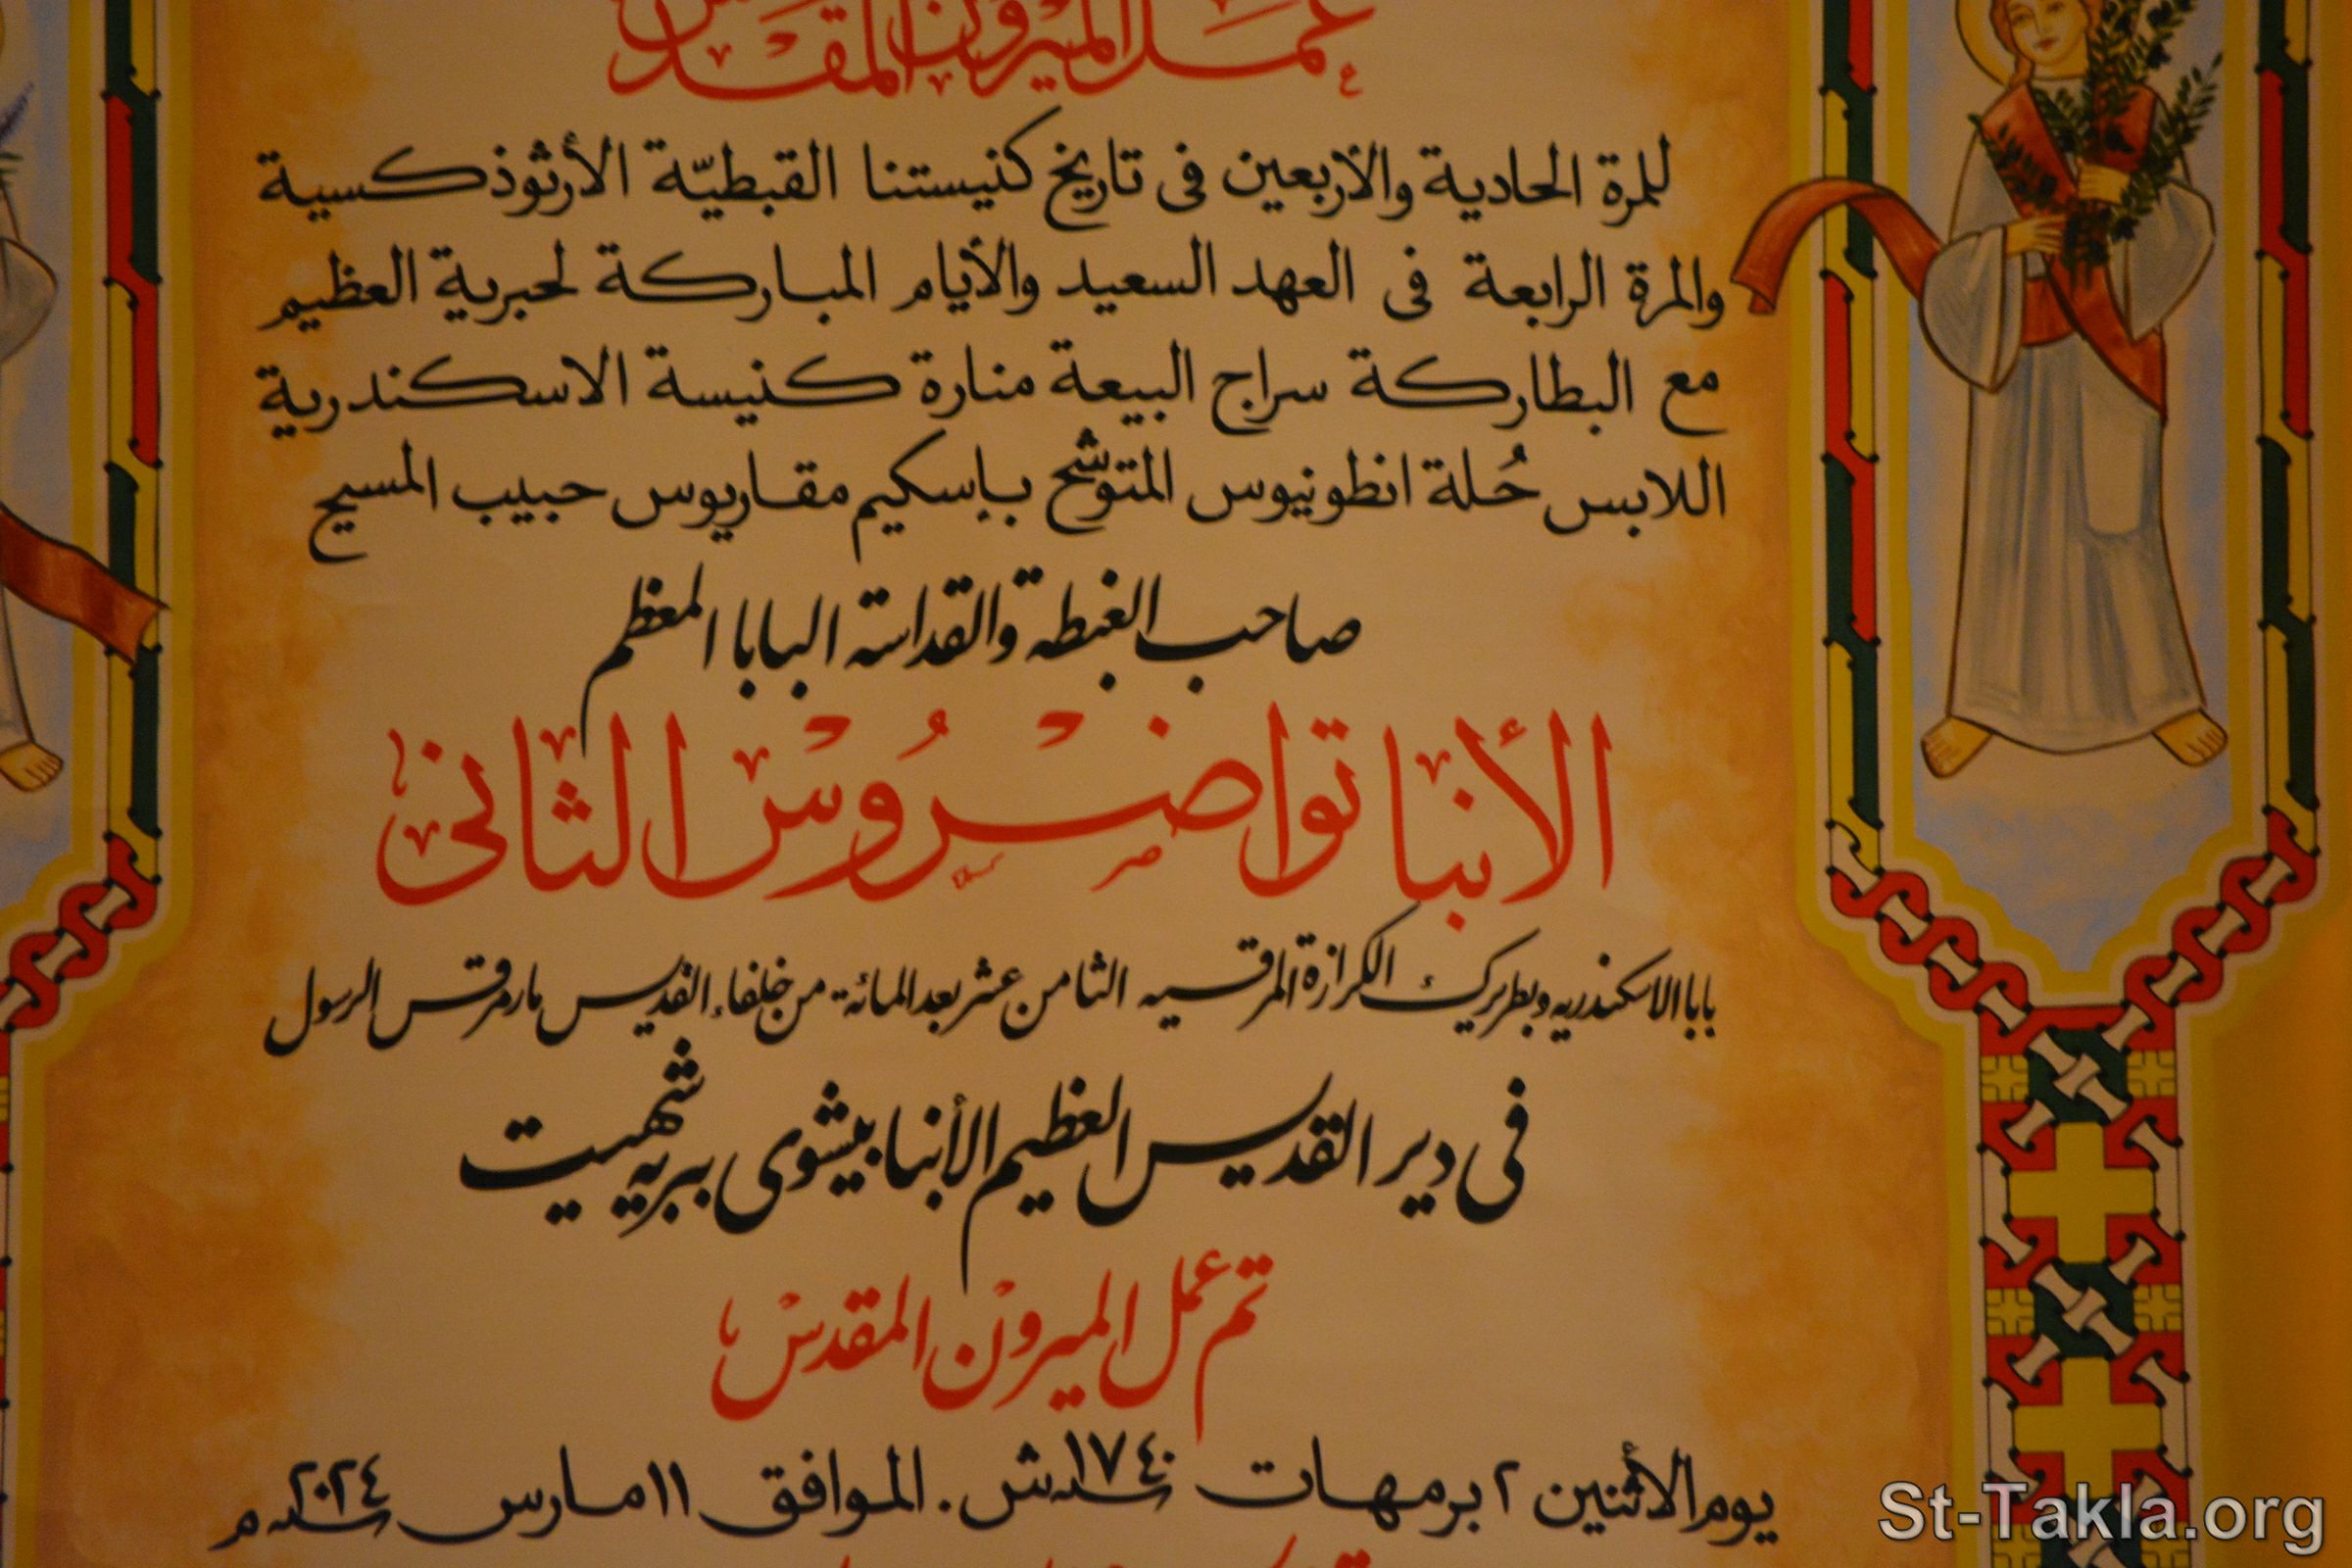 عمل الميرون المقدس
للمرة الحادية والأربعين فى تاريخ كنيستنا القبطيّة الأرثوذكسية
والمرة الرابعة فى العهد السعيد والأيام المباركة لحبرية العظيم
مع البطاركة سراج البيعة منارة كنيسة الاسكندرية
اللابس حُلة انطونيوس المتوشح بإسكيم مقاريوس حبيب المسيح
صاحب الغبطه والقداسته البابا المعظم
الأنبا تواضْروُسْ الثانى
بابا الاسكندريه وبطريرك الكرازة المرقسيه الثامن عشر بعد المائة من خلفاء القديس مارمرقس الرسول
فى دير القديس العظيم الأنبا بيشوى ببريه شهيت
تم عمل الميرون المقدس
يوم الأثنين ٢ برمهات ١٧٤٠ سنة ش. الموافق ١١ مارس ٢٠٢٤ سنة م
St-Takla.org